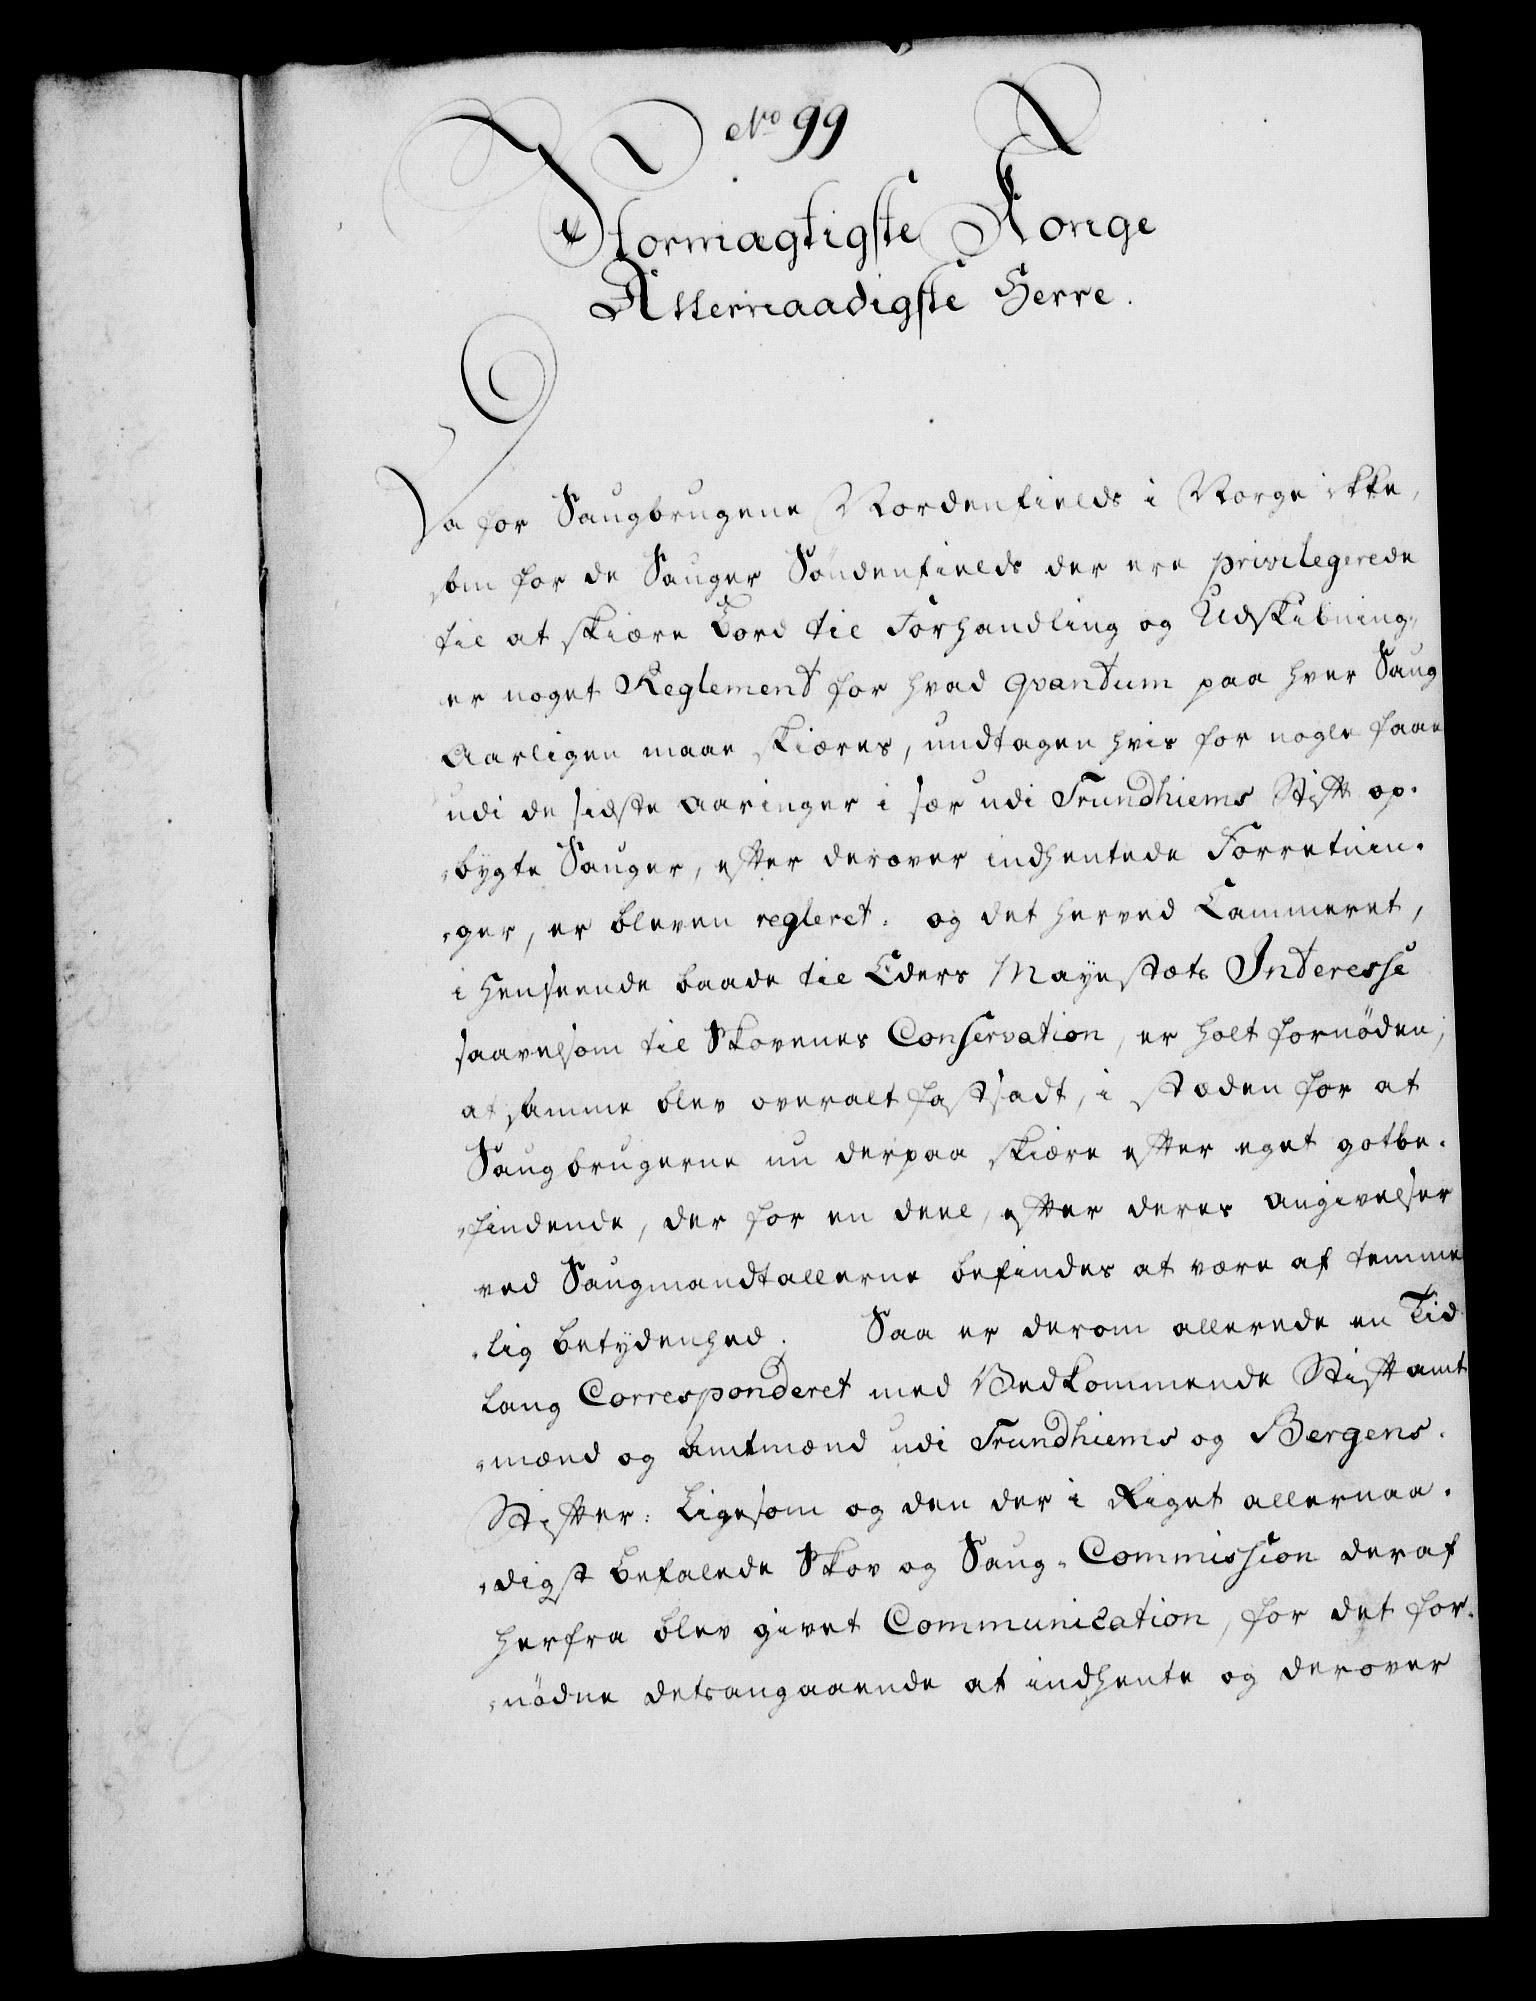 No 99
Stormagtigste Konge
Allernaadigste Herre.
Da for Saugbrugene Nordenfields i Norge ikke,
som for de Sauger Söndenfields der ere privilegerede
til at skiære Bord til Forhandling og Udskibning,
er noget Reglement for hvad qvantum paa hver Saug
Aarligen maae skiæres, undtagen hvis for nogle faae
udi de sidste Aaringer i sær udi Trundhiems Stift op-
bygte Sauger, efter derover indhentede Forretnin-
ger, er bleven regleret: og det herved Cammeret,
i Henseende baade til Eders Mayestæts Interesse
saavelsom til Skovenes Conservation, er holt fornöden,
at samme blev overalt fastsadt, i stæden for at
Saugbrugerne nu derpaa skiære efter eget gotbe-
findende, der for en deel, efter deres angivelser
ved Saugmandtallerne befindes at være af temme
lig betydenhed. Saa er derom allerede en Tid
lang Corresponderet med Vedkommende Stiftamt
mænd og Amtmænd udi Trundhiems og Bergens
Stifter: Ligesom og den der i Riget allernaa-
digst befalede Skov og Saug-Commission deraf
herfra blev givet Communication, for det for-
nödne detsangaaende at indhente og derover